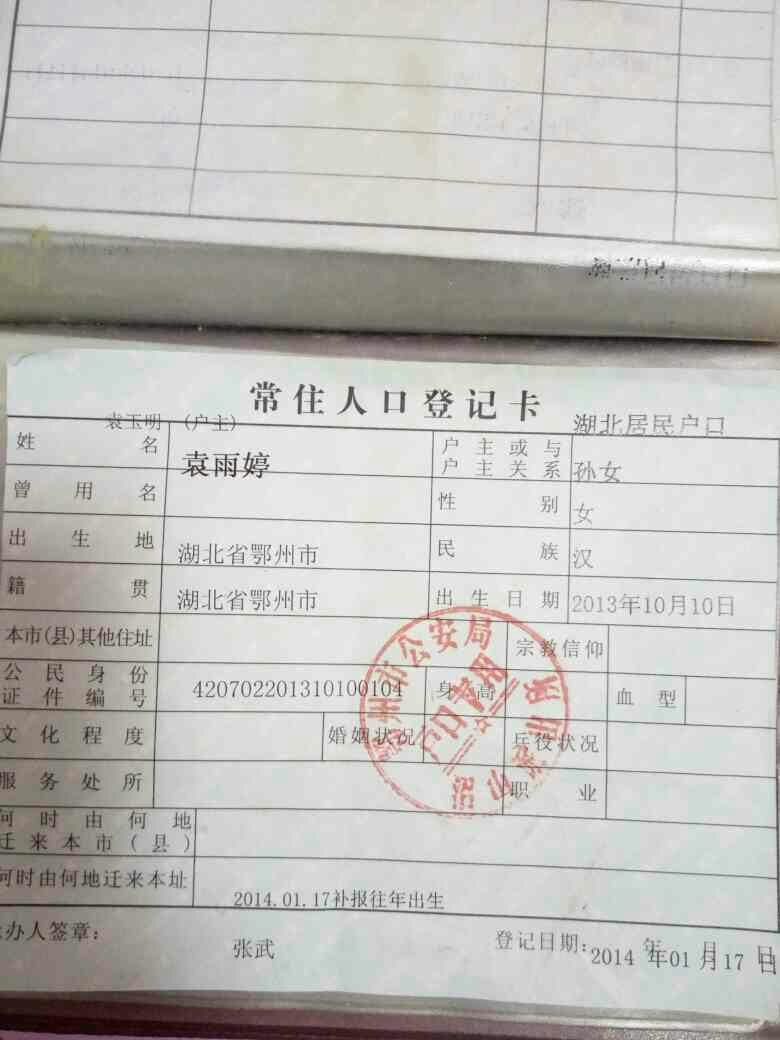 常住人口登记卡
袁玉明 (户主) 湖北居民户口
姓名 袁雨婷 户主或与户主关系 孙女
曾用名 性别 女
出生地 湖北省鄂州市 民族 汉
籍贯 湖北省鄂州市 出生日期 2013年10月10日
本市(县)其他住址 宗教信仰
公民身份证件编号 420702201310100104 身高 血型
文化程度 婚姻状况 兵役状况
服务处所 职业
何时由何地迁来本市(县)
何时由何地迁来本址 2014.01.17补报往年出生
承办人签章: 张武 登记日期: 2014年01月17日
鄂州市公安局
户口专用